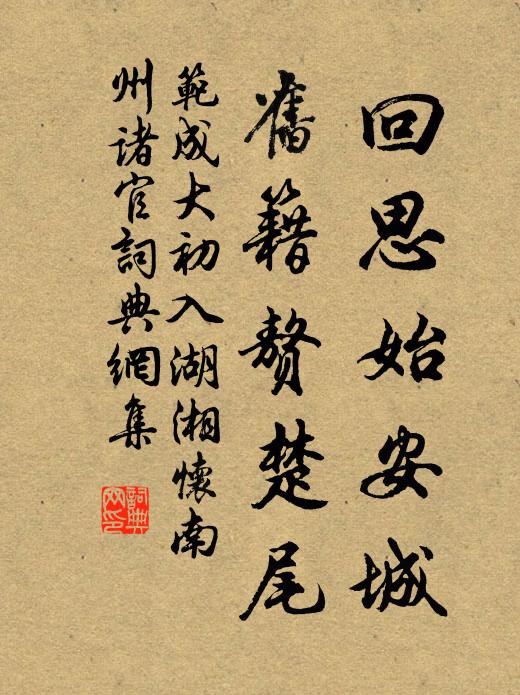 回思始安城
舊籍贅楚尾
範成大初入湖湘懷南
州諸官詞典網集
詞典網印